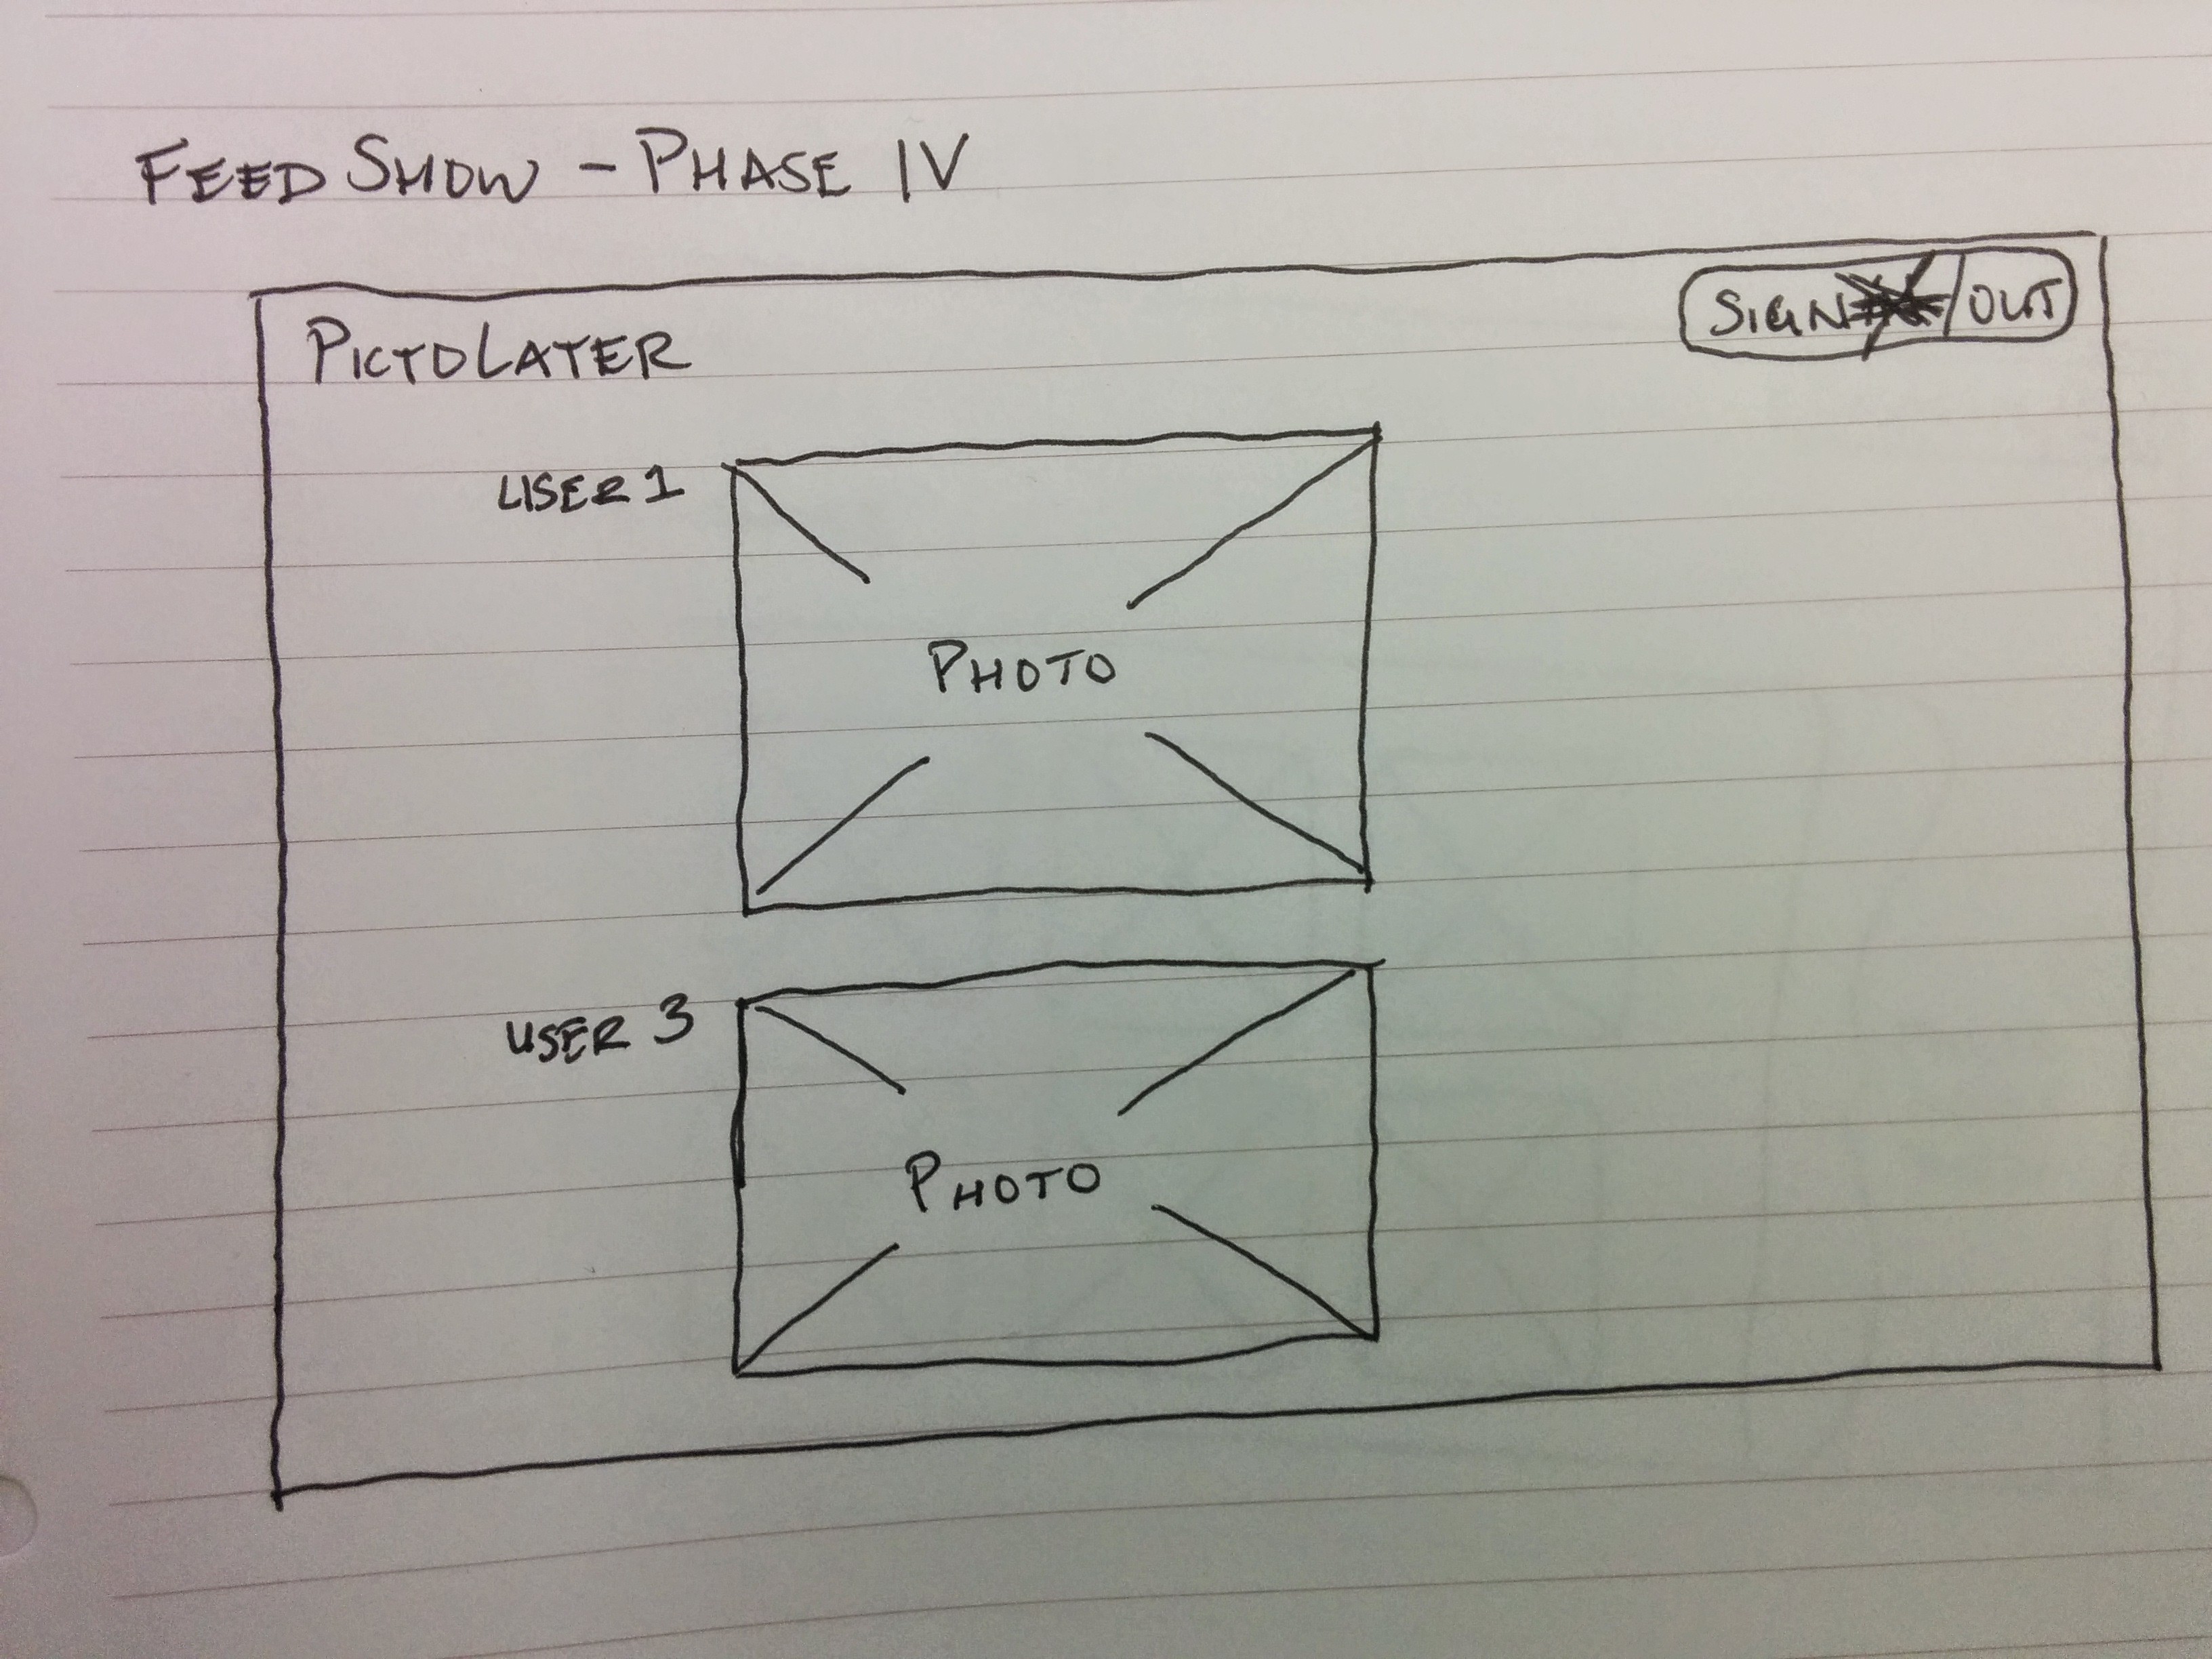 FEED SHOW - PHASE IV
PICTOLATER
SIGN /OUT
USER 1
PHOTO
USER 3
PHOTO